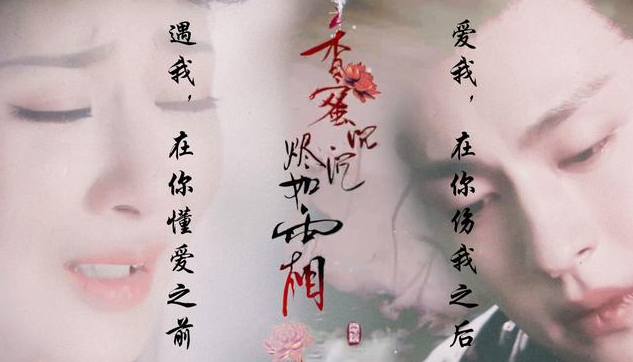 遇我，在你懂爱之前
香蜜沉沉
烬如霜
爱我，在你伤我之后